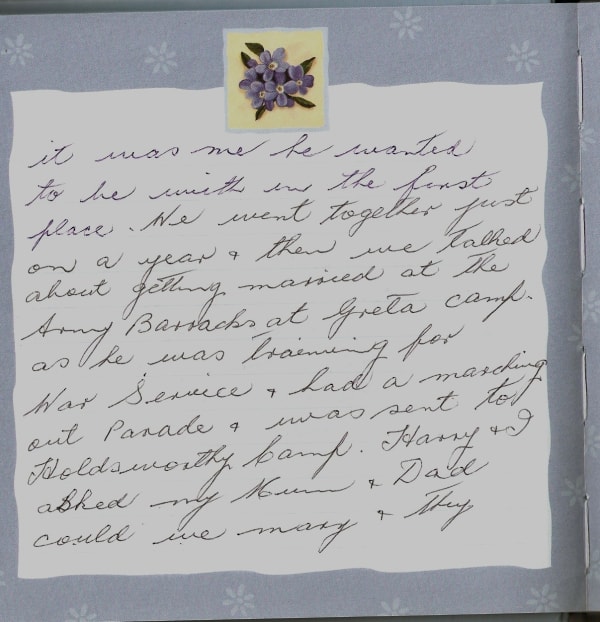 it was me he wanted
to be with in the first
place. We went together just
on a year & then we talked
about getting married at the
Army Barracks at Greta camp.
as he was trainning for
War Service & had a marching
out Parade & was sent to
Holdsworthy Camp. Harry & I
asked my Mum & Dad
could we mary & they